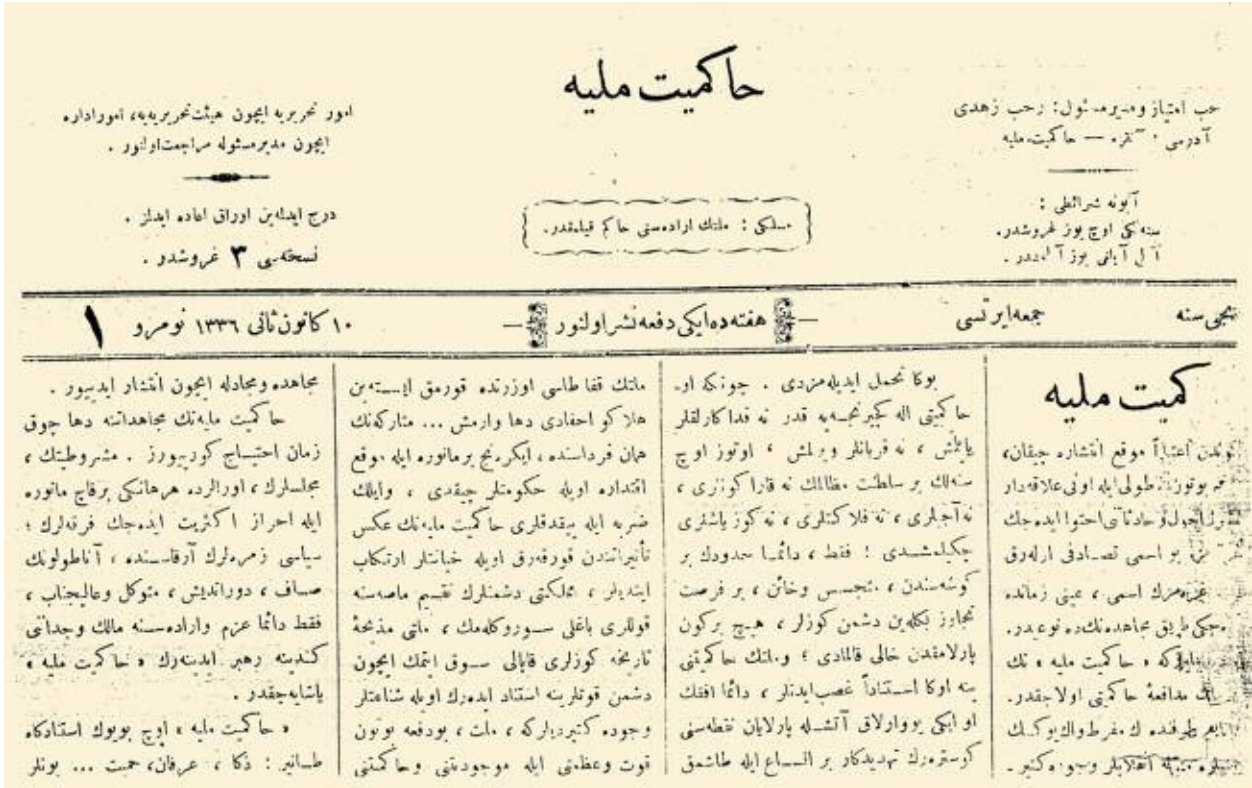 حاكميت مليه
حب امتياز و مدير مسئول: رجب زهدى
آدرسى : نقره — حاكميت مليه
آبونه شرائطى :
سنه لكى اوچ يوز غروشدر.
آلتى آيلغى يوز آلتمشدر.
مسلكى : ملتك اراده سنى حاكم قيلمقدر.
امور تحريريه ايچون هيئت تحريريه يه، امور اداره
ايچون مدير مسئوله مراجعت اولنور .
درج ايدلمه ين اوراق اعاده ايدلمز .
نسخه سى ٣ غروشدر .
نجى سنه
جمعه ايرتسى
هفته ده ايكى دفعه نشر اولنور
١٠ كانون ثانى ١٣٣٦ نومرو ١
كميت مليه
كوندن اعتباراً موقع انتشاره چيقان،
بوتون طولى ايله اونى علاقه دار
حادثاتى احتوا ايده جك
بو اسمى تصادفى اوله رق
غزته مزك اسمى ، عينى زمانده
طريق مجاهده نك ده نوعيدر.
« حاكميت مليه » نك
مدافعهٔ حاكميتى اولاجقدر.
طرفنده ك مفرط و اك يوكسك
انقلابلر وجوده كتير .
بوكا تحمل ايديله مزدى . چونكه او.
حاكميتى اله كچيرنجه يه قدر نه فداكارلقلر
ياپلمش ، نه قربانلر ويرلمش ، اوتوز اوچ
سنه لك بر سلطنت مظالمك نه قارا كونلرى ،
نه آجيلرى ، نه فلاكتلرى ، نه كوز ياشلرى
چكيلمشدى ! فقط ، دائما حدودك بر
كوشه سندن ، متجسس و خائن ، بر فرصت
تجاوز بكله ين دشمن كوزلر ، هيچ بركون
پارلامقدن خالى قالمادى ؛ و ملتك حاكميتنى
ينه اوكا استناداً غصب ايدنلر ، دائما افقك
او ايكى يووارلاق آتشله پارلايان نقطه سنى
كوستره رك تهديدكار بر الماع ايله طاشمق
ملتك قفا طاسى اوزرنده قورمق ايسته ين
هلاكو احفادى دها وارمش ... متاركه نك
همان فرداسنده ، ايكرنج بر مانوره ايله موقع
اقتداره اويله حكومتلر چيقدى ، و ايلك
ضربه ايله ييقدقلرى حاكميت مليه نك عكس
تأثيراتندن قورقه رق اويله خيانتلر ارتكاب
ايتديلر ، مملكتى دشمنلرك تقسيم ماصه سنه
قوللرى باغلى سوروكله مك ، ملتى مذبحهٔ
تاريخه كوزلرى قاپالى سوق ايتمك ايچون
دشمن قوتلرينه استناد ايده رك اويله شناعتلر
وجوده كتيرديلركه ، ملت ، بودفعه بوتون
قوت و عظمتى ايله موجوديتنى و حاكميتنى
مجاهده و مجادله ايچون انتشار ايدييور .
حاكميت مليه نك مجاهداتنه دها چوق
زمان احتياج كورييورز . مشروطيتك ،
مجلسلرك ، اورالرده هر هانكى برقاچ مانوره
ايله احراز اكثريت ايده جك فرقه لرك ؛
سياسى زمره لرك آرقاسنده ، آناطولونك
صاف ، دورانديش ، متوكل و عاليجناب ،
فقط دائما عزم و اراده سنه مالك وجدانى
كندينه رهبر ايدينه رك « حاكميت مليه »
ياشايه جقدر .
« حاكميت مليه » اوچ بويوك استنادكاه
طانير : ذكا ، عرفان، حميت ... بونلر